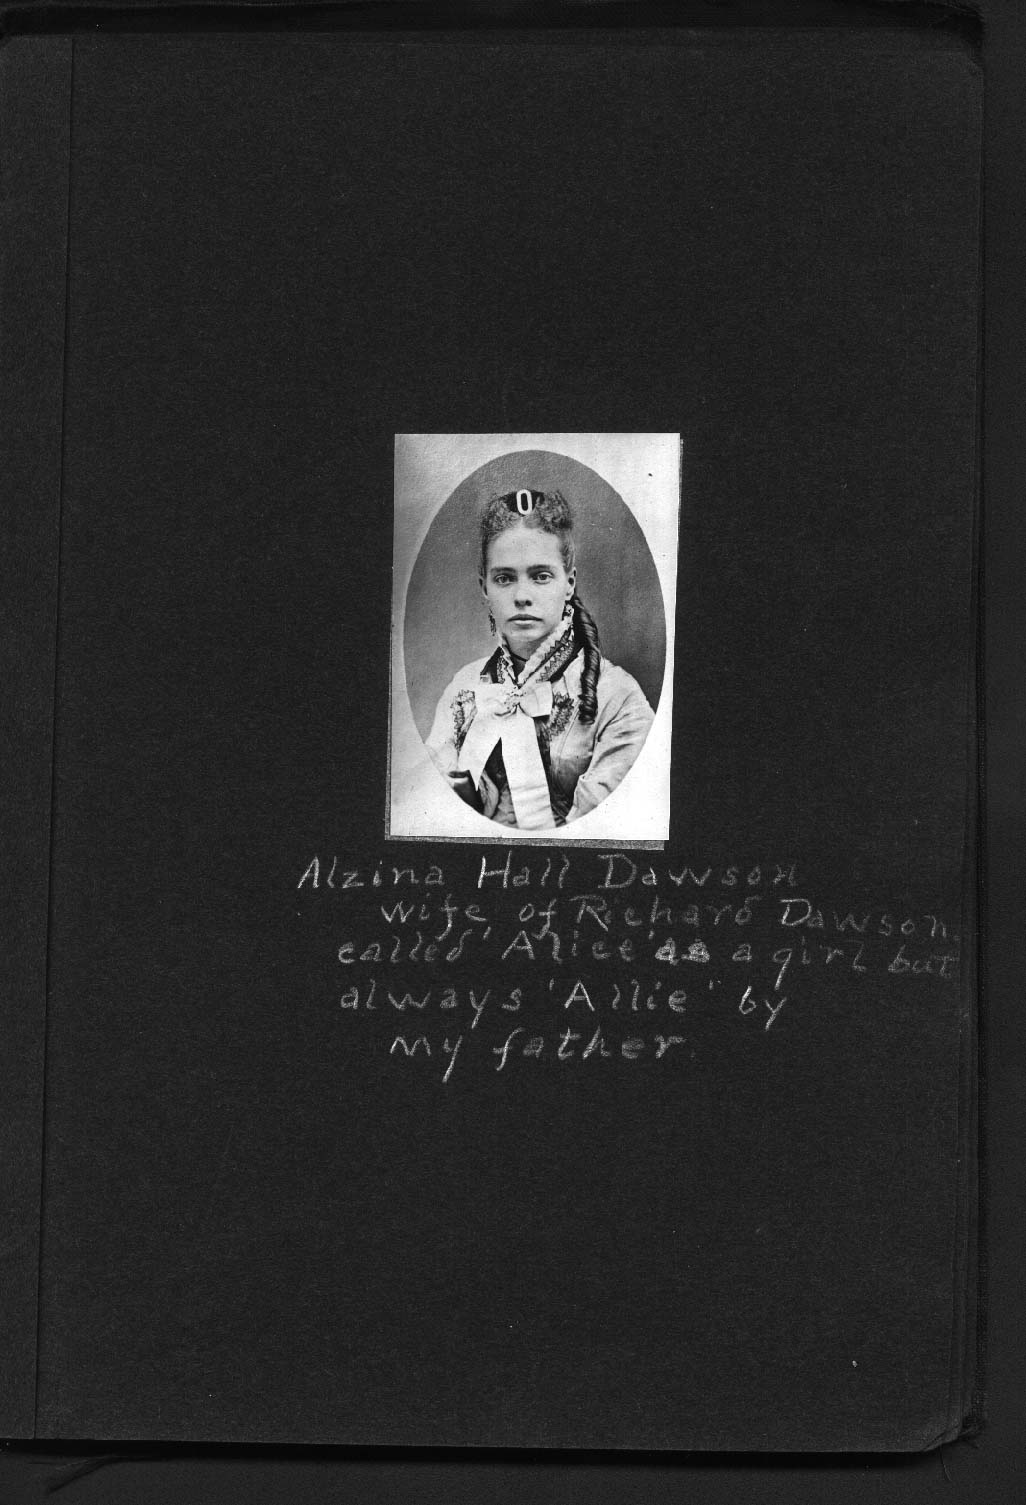 Alzina Hall Dawson
wife of Richard Dawson.
called 'Alice' as a girl but
always 'Allie' by
my father.